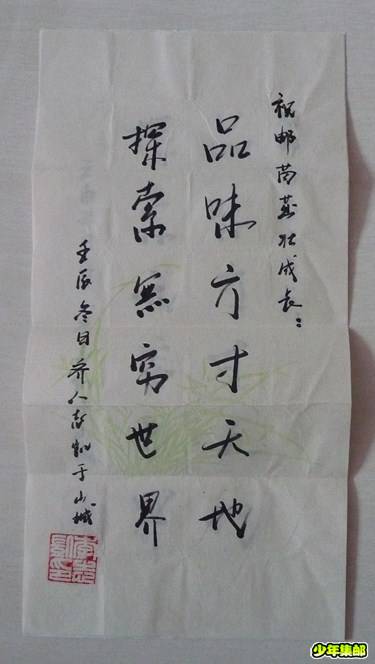 祝邮苗茁壮成长：
品味方寸天地
探索無穷世界
壬辰冬日乔人於山城
少年集邮